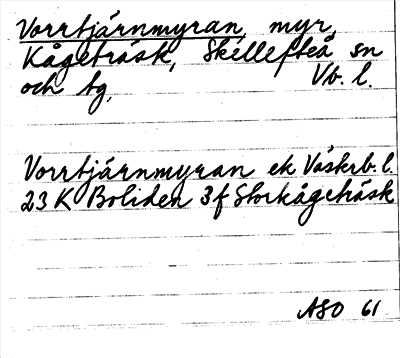 Vorrtjärnmyran, myr,
Kågeträsk, Skellefteå sn
och tg, Vb. l.
Vorrtjärnmyran ek Västerb. l.
23 K Boliden 3f Storkågeträsk
ASO 61